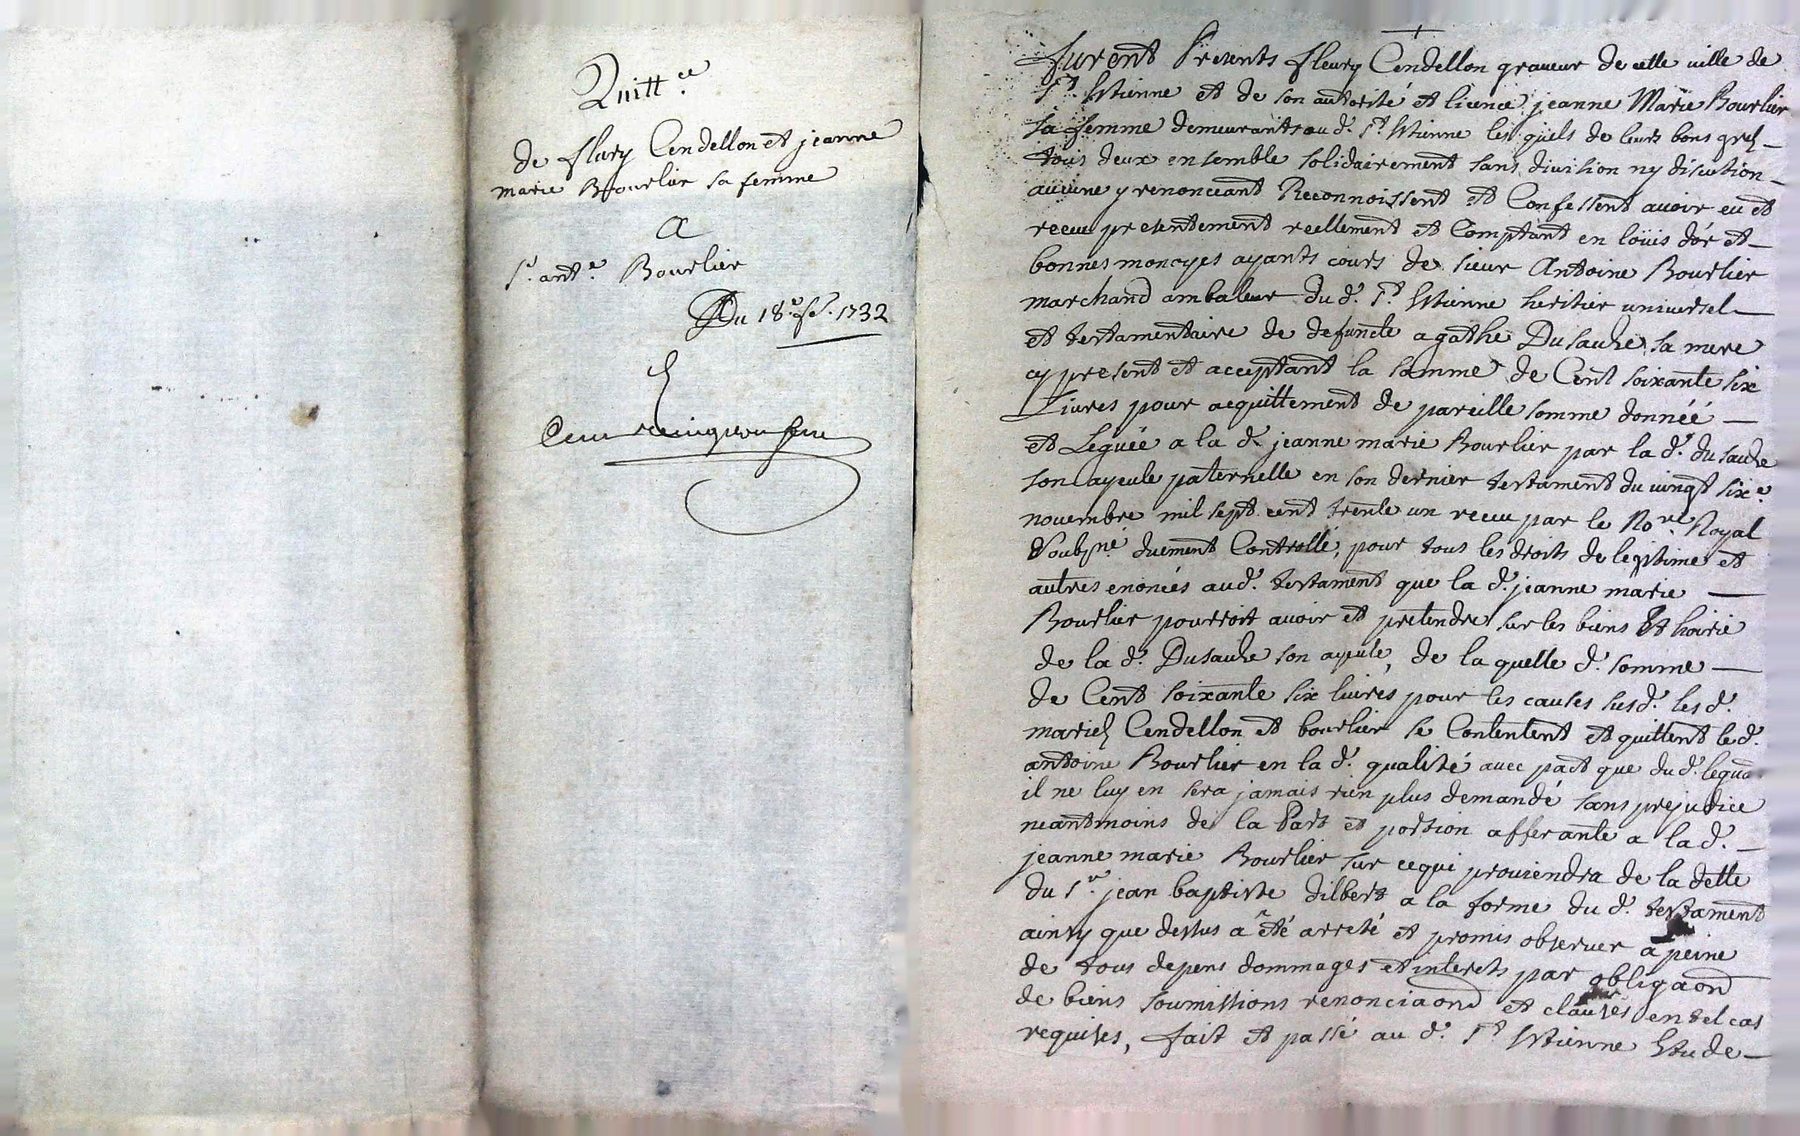 Quitt.ce
de fleury Cendellon et jeanne
marie Bourlier sa femme
a
s.r ant.e Bourlier
Du 18.e fe. 1732
furent Presents fleury Cendellon graveur de cette ville de
S.t Estienne et de son autorité et licence jeanne Marie Bourlier
sa femme demeurants au d. S.t Estienne les quels de leurs bons grez
tous deux ensemble solidairement sans division ny discution
aucune y renonceant Reconnoissent et Confessent avoir eu et
receu presentement reellement et Comptant en loüis d'or et
bonnes monoyes ayants cours de sieur Antoine Bourlier
marchand ambaleur du d. S.t Estienne heritier universel
et testamentaire de defuncte agathe Dusauze sa mere
cy present et acceptant la somme de Cent soixante six
Livres pour acquittement de pareille somme donnéé
et Leguéé a la d. jeanne marie Bourlier par la d. du sauze
son ayeule paternelle en son dernier testament du vingt six.e
novembre mil sept cent trente un receu par le No.re Royal
soubs.né duement Controllé, pour tous les droits de legitime et
autres enoncés au d. testament que la d. jeanne marie
Bourlier pourroit avoir et pretendre sur les biens et hoirie
de la d. Dusauze son ayeule, de la quelle d. somme
de Cent soixante six livres pour les causes susd. les d.
mariez Cendellon et bourlier se Contentent et quittent le d.
antoine Bourlier en la d. qualité avec pact que du d. legua
il ne luy en sera jamais rien plus demandé sans prejudice
neantmoins de la Part et portion afferante a la d.
jeanne marie Bourlier sur ce qui proviendra de la dette
du s.r jean baptiste dilbert a la forme du d. testament
ainsy que dessus a été arreté et promis observer a peine
de tous depens dommages et interets par obligaon
de biens soumissions renonciaons et clauses en tel cas
requises, fait et passé au d. S.t Estienne Etude